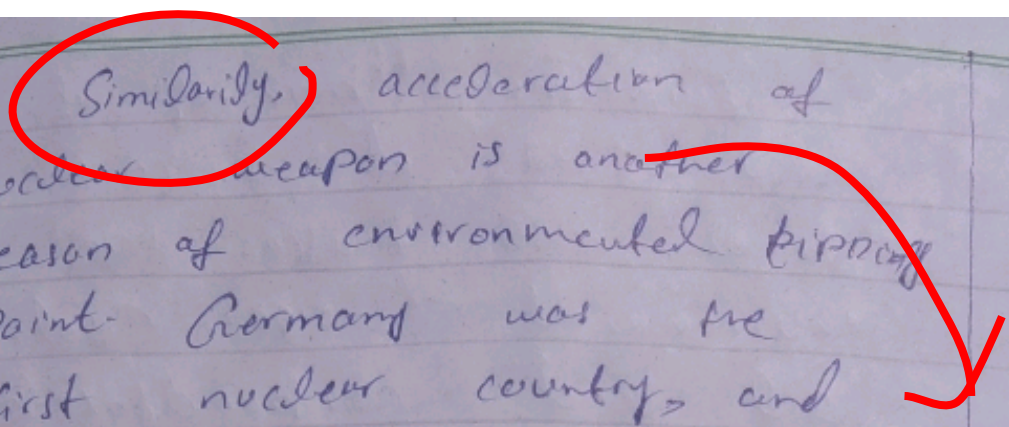 Similarily, acceleration of
nuclear weapon is another
eason of environmental tipping
point. Germany was the
first nuclear country, and